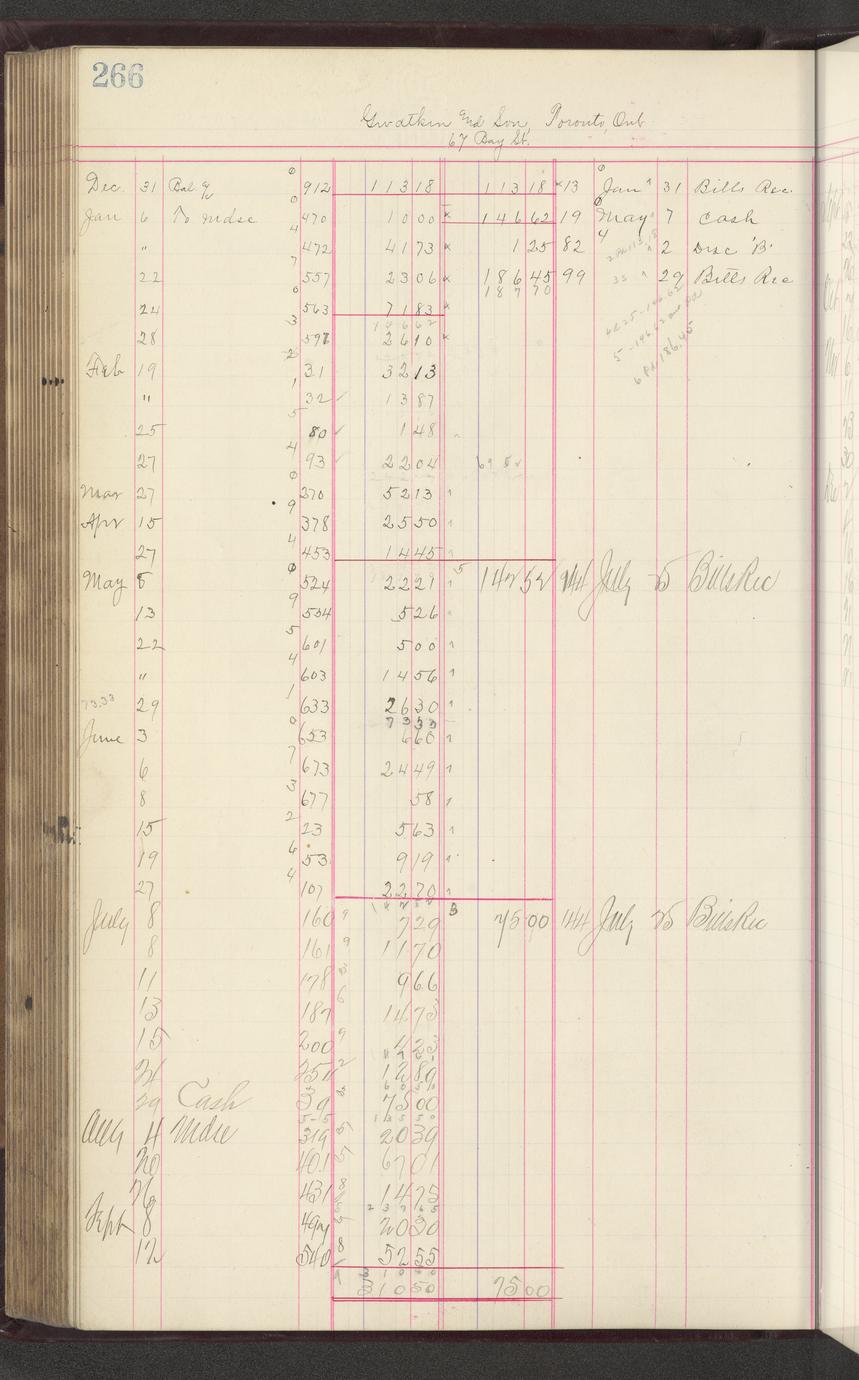 266
Gwatkin and Son, Toronto, Ont.
67 Bay St.
Dec. 31 Bal 912 113 18 113 18 13 Jan 31 Bills Rec.
Jan 6 To Mdse 470 10 00 146 62 19 May 7 Cash
" 472 41 73 1 25 82 " 2 Disc 'B'
22 557 23 06 186 45 99 " 29 Bills Rec
187 70
24 563 71 83
146 62
28 597 26 10
Feb 19 31 32 13
" 32 13 87
25 80 1 48
27 93 22 04
Mar 27 270 52 13
Apr 15 378 25 50
27 453 14 45
May 8 524 22 21 142 52 July 25 Bills Rec
13 554 5 26
22 601 5 00
" 603 14 56
73.33 29 633 26 30
73 33
June 3 653 6 60
6 673 24 49
8 677 58
15 23 5 63
19 53 9 19
27 107 22 70
July 8 160 7 29 75 00 144 July 25 Bills Rec
8 161 11 70
11 178 9 66
13 187 14 73
15 200 4 23
21 251 12 89
29 Cash 39 75 00
Aug 4 Mdse 319 20 39
20 401 67 01
26 431 14 75
Sept 8 497 20 30
12 540 52 55
310 50 75 00